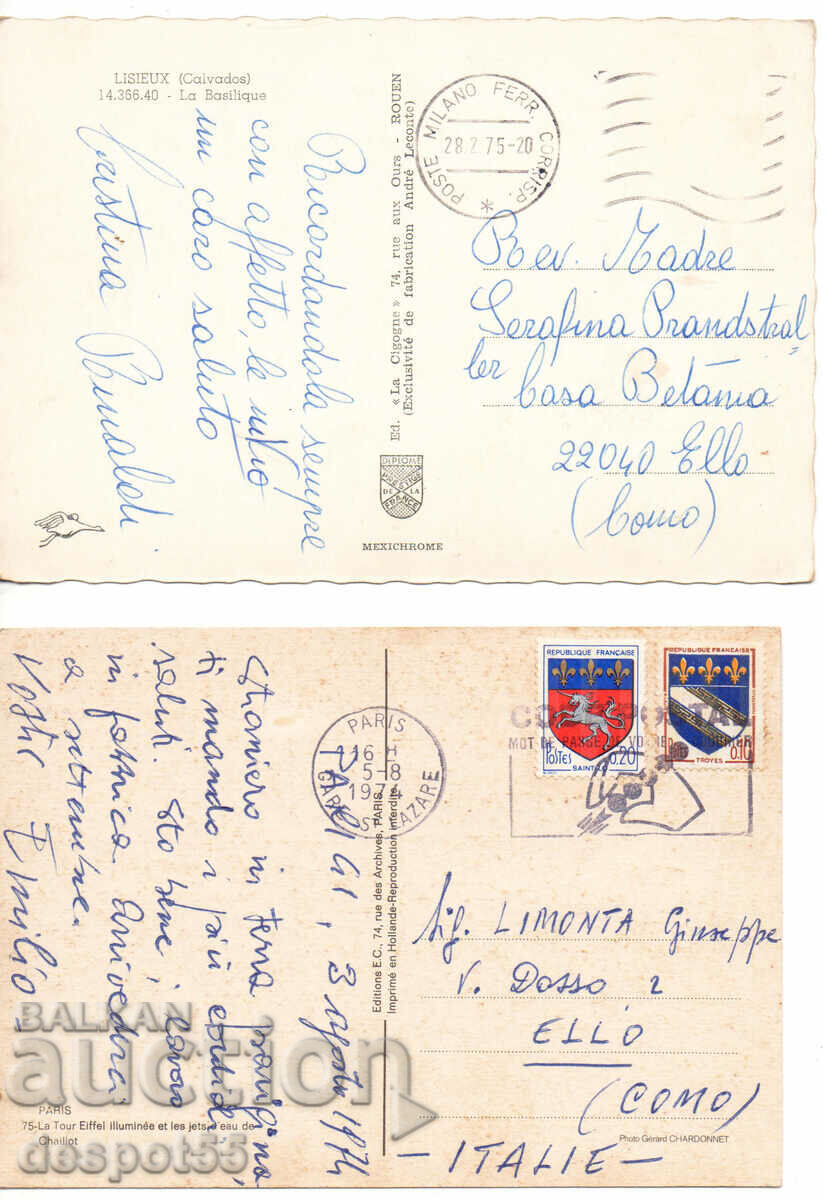 LISIEUX (Calvados)
14.366.40 - La Basilique
Ricordandola sempre
con affetto, le invio
un caro saluto
Ed. « La Cigogne » 74, rue aux Ours - ROUEN
(Exclusivité de fabrication André Leconte)
DIPLOME
PRESTIGE
DE LA
FRANCE
MEXICHROME
POSTE MILANO FERR. CORRISP.
28.2.75-20
Rev. Madre
Serafina Prandstral
ler
Casa Betania
22040 Ello
(Como)
REPUBLIQUE FRANÇAISE
POSTES
0,20
REPUBLIQUE FRANCAISE
TROYES
0.10
CODE POSTAL
MOT DE PASSE DE VOTRE COURRIER
PARIS
16 H
5-8
1974
GARE ST LAZARE
PARIGI, 3 agosto 1974
Straniero in terra parigina
ti mando i più cordiali
saluti. Sto bene, lavoro
in fabbrica arrivederci
a settembre.
Emilio
Editions E.C., 74, rue des Archives, PARIS.
Imprimé en Hollande-Reproduction interdite.
Sig. LIMONTA Giuseppe
V. Dosso 2
ELLO
(COMO)
- ITALIE -
Photo Gérard CHARDONNET
PARIS
75-La Tour Eiffel illuminée et les jets d'eau de
Chaillot
BALKAN
auction
despot55